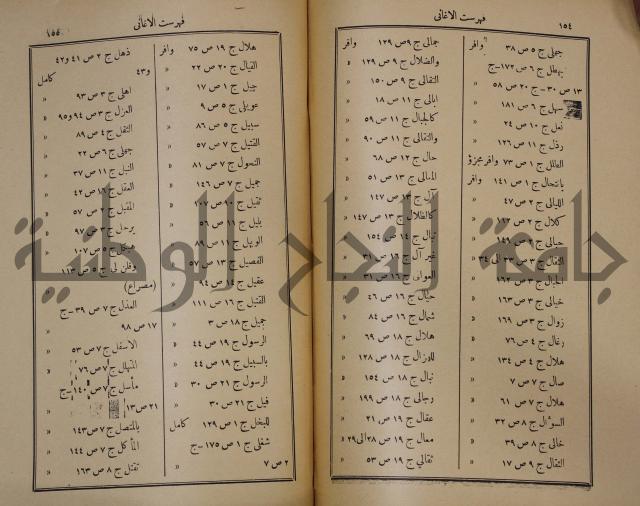 ١٥٤
فهرست الاغانى
جملى ج ٥ ص ٣٨ وافر
يهطل ج ٦ ص ١٧٢ــج
١٣ ص ٣٠ــج ٢٠ ص ٥٨ «
سهل ج ٦ ص ١٨١
نعل ج ١٠ ص ٢٤ «
رذل ج ١١ ص ١٢٦ «
الملل ج ١ ص ٧٣ وافر مجزؤ
بانتحال ج ١ ص ١٤١ وافر
الليالى ج ٢ ص ٤٧ «
كلال ج ٢ ص
حبالى ج ٢ ص ١٤٩
الثقال ج ٣ ص
الجبال ج ٣ ص ١٦٢
خيالى ج ٣ ص ١٦٣ «
زوال ج ٣ ص ١٦٩ «
رغال ج ٤ ص ٧٦ «
هلال ج ٤ ص ١٣٤ «
صال ج ٧ ص ٧ «
هلال ج ٧ ص ٦١ «
السؤال ج ٨ ص ٣٢ «
خالى ج ٨ ص ٣٩ «
الثقال ج ٩ ص ١٧ «
جمالى ج ٩ ص ١٢٩ وافر
والضلال ج ٩ ص ١٢٩ «
الثقالى ج ٩ ص ١٥٠ «
ابالى ج ١١ ص ١٨ «
كالجبال ج ١١ ص ٥٩ «
والثقالى ج ١١ ص ٩٠ «
حال ج ١٢ ص ٦٨ «
المالى ج ١٣ ص ٥١ «
آل ج ١٣ ص ١٤٧
كالظلال ج ١٣ ص ١٤٧ «
تبال ج ١٤ ص ١٥٤
غير آل ج ١٦ ص ٣١
العوالى ج ١٦ ص ٣١
حيال ج ١٦ ص ٤٦
شمال ج ١٦ ص ٨٤ «
هلال ج ١٨ ص ٦٩ «
للنزال ج ١٨ ص ١٢٨ «
نبال ج ١٨ ص ١٥٤ «
رجالى ج ١٨ ص ١٩٩ «
عقال ج ١٩ ص ٢١ «
معال ج ١٩ ص ٢٨الى٢٩ «
ثقالي ج ١٩ ص ٥٣ «
فهرست الاغانى
١٥٥
هلال ج ١٩ ص ٧٥ وافر
القيال ج ٢٠ ص ٢٢ «
جيل ج ١ ص ١٧ «
عويلى ج ٥ ص ٩ «
سبيل ج ٥ ص ٨٦ «
القتيل ج ٧ ص ٥٧ «
النحول ج ٧ ص ٨١ «
جميل ج ٧ ص ١٤٦ «
ثقيل ج ٩ ص ١٠٧
بليل ج ١١ ص ٥٦
الويل ج ١١ ص ٨٩
الفصيل ج ١٣ ص ٥٧
عقيل ج ١٤ ص ٩٤
القتيل ج ١٦ ص ١١١ «
جميل ج ١٨ ص ٣ «
الرسول ج ١٩ ص ٤٤ «
بالسبيل ج ١٩ ص ٤٤ «
الرسول ج ٢١ ص ٣٠ «
قيل ج ٢١ ص ٣٠ «
للبخل ج ١ ص ١٢٩ كامل
شغلى ج ١ ص ١٧٥ــج
٢ ص ٧ «
ذهل ج ٢ ص ٤١ و٤٢
و٤٣ كامل
اهلى ج ٣ ص ٩٣ «
العزل ج ٣ ص ٩٤ و٩٥ «
الثقل ج ٤ ص ٨٩ «
جملى ج ٦ ص ٢٢ «
النبل ج ١١ ص ٣٧ «
العقل ج ١٦ ص ٤٢
المقبل ج ٢ ص ٥٧
يرحل ج ٣ ص ٩٧
هيكل ج ٥ ص ١٠٧
ج ٥ ص ١١٣
(مصراع)
العذل ج ٧ ص ٣٩ــج
١٧ ص ٩٨ «
الاسفل ج ٧ ص ٥٣ «
المنهلل ج ٧ ص ٧٦ «
مأسل ج ٧ ص ١٤٠ــج
٢١ ص ١٣ «
بالمتصل ج ٧ ص ١٤٣ «
المأكل ج ٧ ص ١٤٤ «
تقتل ج ٨ ص ١٦٣ «
جامعة النجاح الوطنية